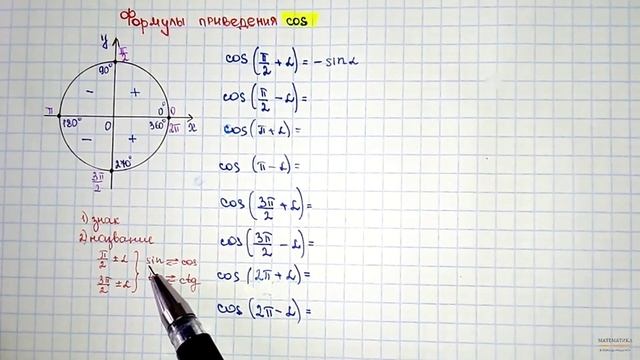 Формулы приведения cos
y
π/2
90°
− +
π 180° 0 0° 0
360° 2π x
− +
270°
3π/2
1) знак
2) название
π/2 ± α } sin ⇄ cos
3π/2 ± α } ⇄ ctg
cos (π/2 + α) = − sin α
cos (π/2 − α) =
cos (π + α) =
cos (π − α) =
cos (3π/2 + α) =
cos (3π/2 − α) =
cos (2π + α) =
cos (2π − α) =
МАТЕМАТИКА